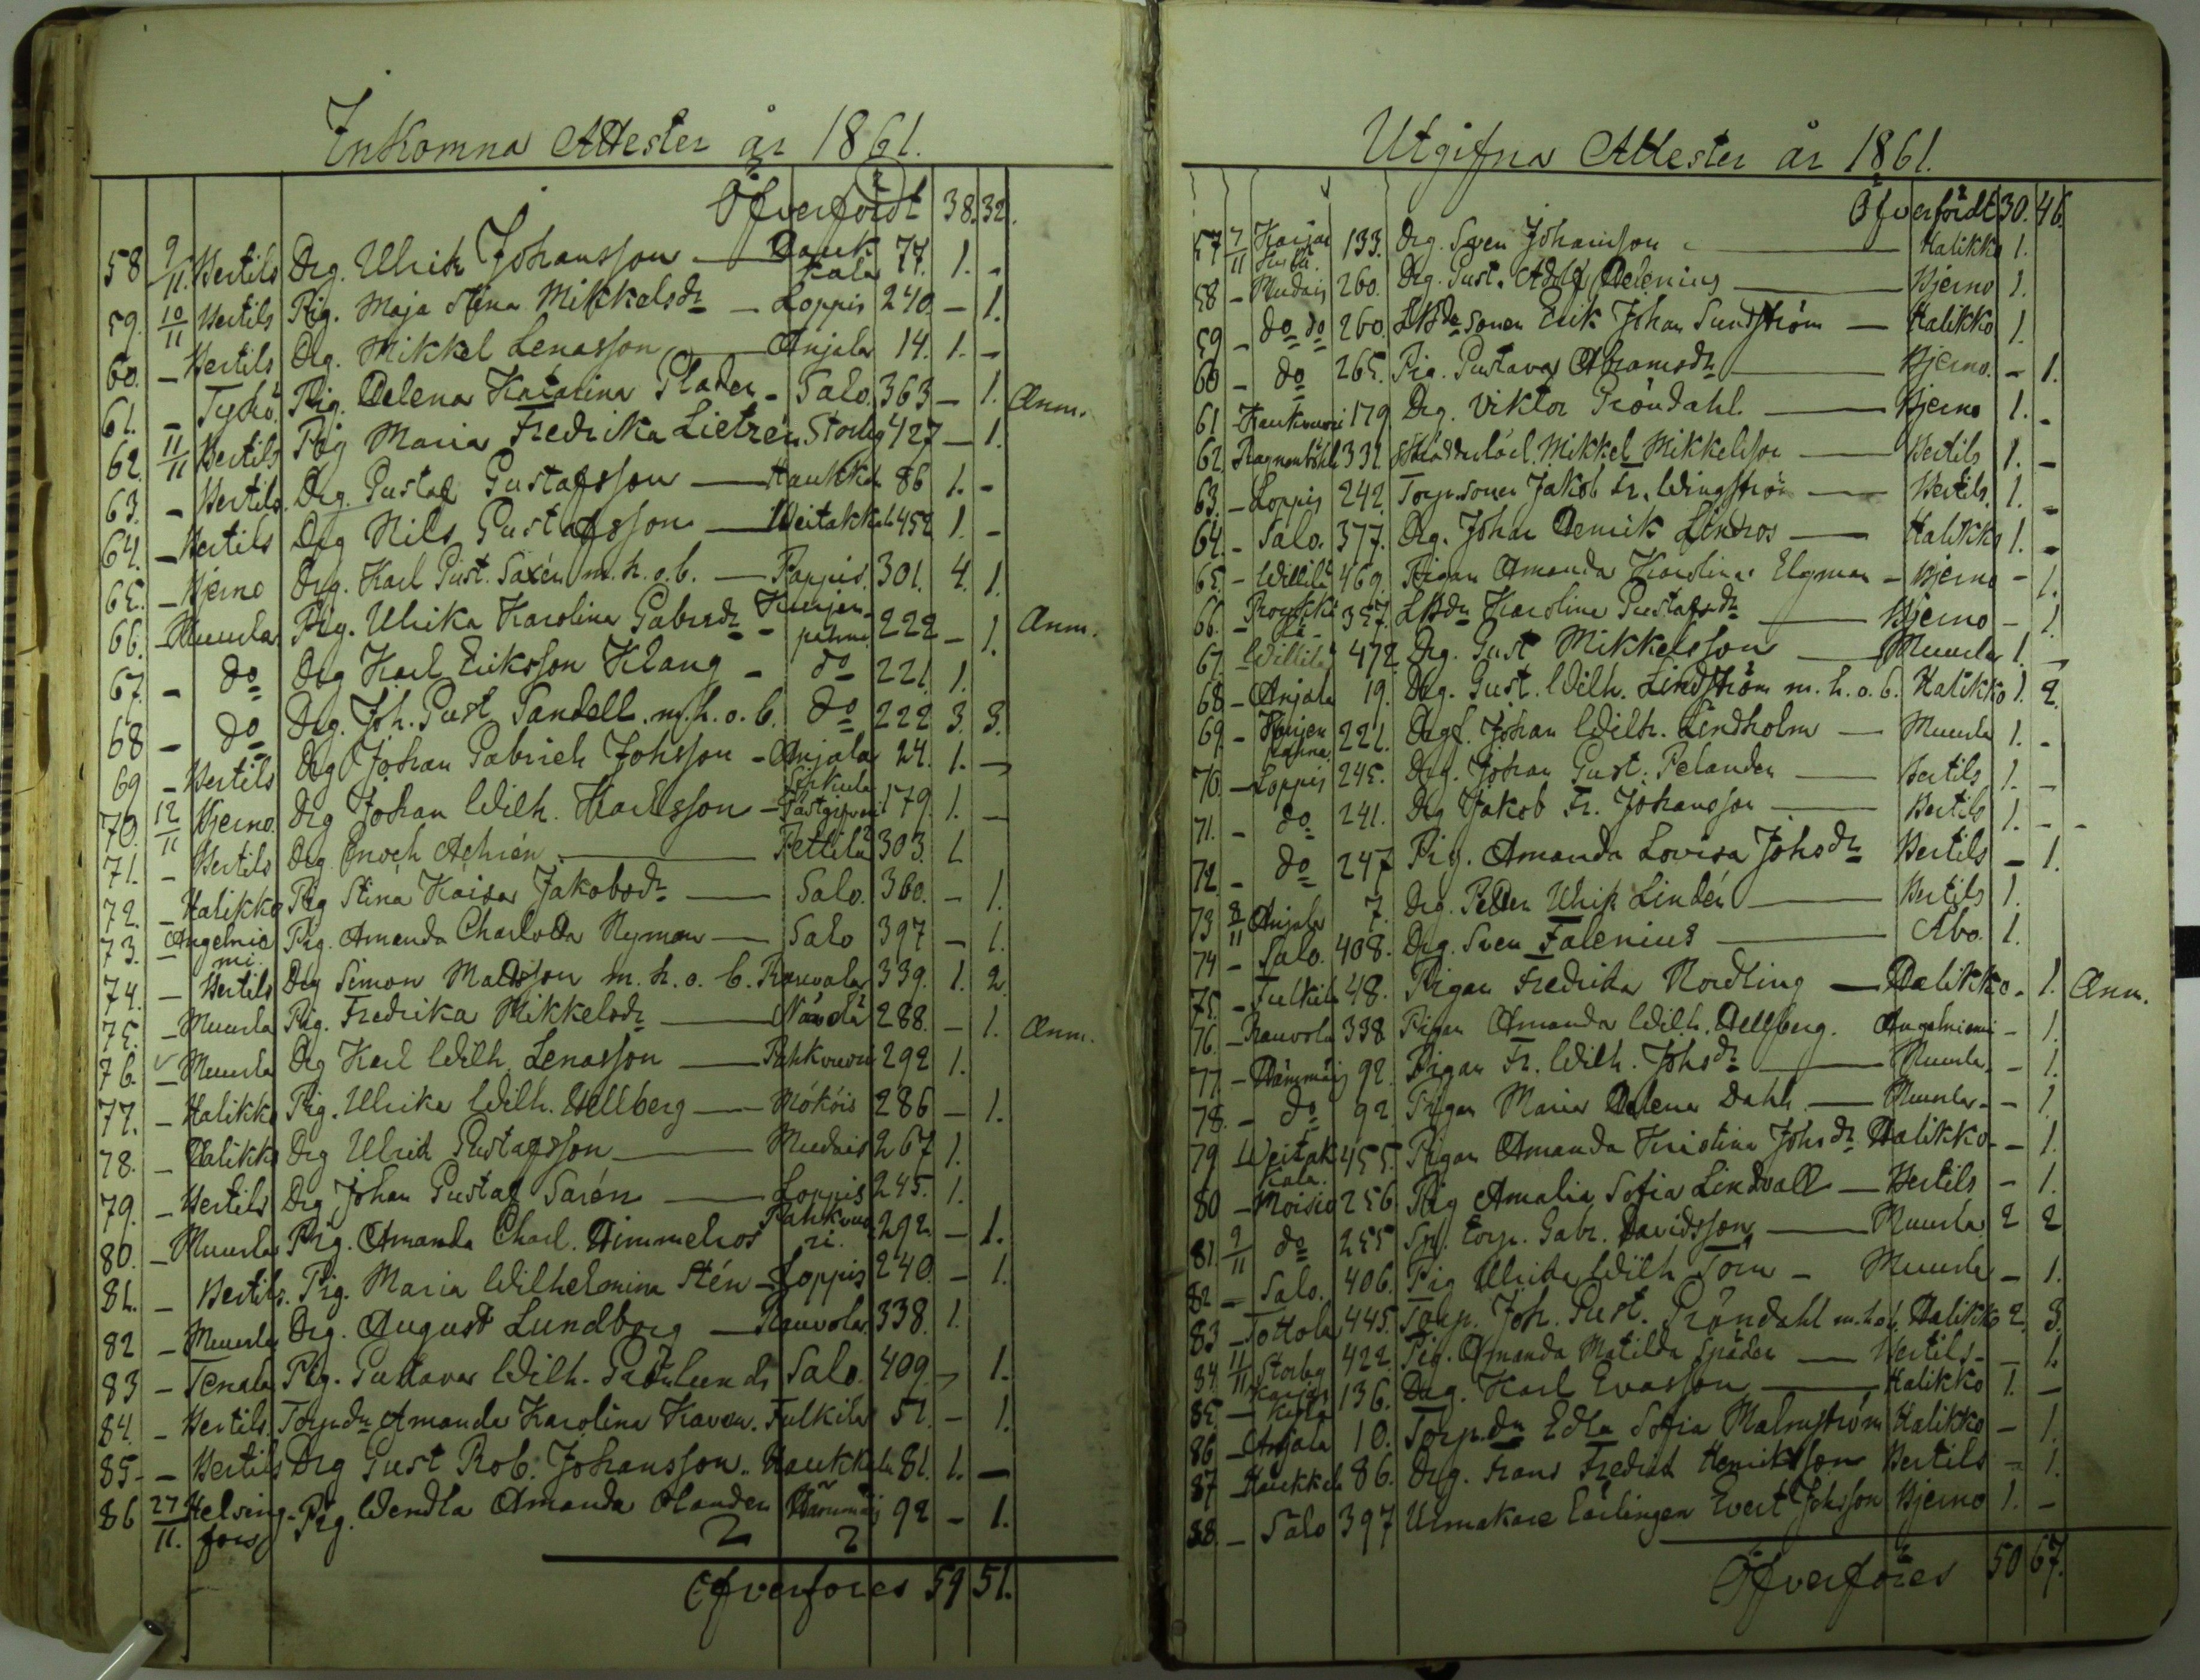 Inkomna Attester år 1861.
Öfverfördt 38. 32.
58 9/11. Bertils Drg. Ulrik Johansson — kala 77. 1. -
59. 10/11 Bertils Pig. Maja Stina Mikkelsdr — Loppis 240. — 1.
60. — Bertils Drg. Mikkel Lenasson — Anjala 14. 1. -
61. — Tykö. Pig. Helena Katarina Plader - Salo. 363 — 1. Anm.
62. 11/11 Bertils Pig Maria Fredrika Lietzén Storby 427 — 1.
63. — Bertils. Drg. Gustaf Gustafsson — Haukka 86 1. -
64. — Bertils Drg Nils Gustafsson — Weitakkala 452 1. -
65. — Bjerno Drg. Karl Gust. Saxén m. h. o. b. — Pappis. 301. 4. 1.
66. — Muurla Pig. Ulrika Karolina Gabrsdr - Kurjenpahna 222 — 1. Anm.
67. - do Drg Karl Eriksson Klang - do 221. 1.
68 — do Drg. Joh. Gust. Sandell m. h. o. b. do 222 3. 3.
69 — Bertils Drg Johan Gabriel Johsson - Anjala 24. 1. —
70. 12/11 Bjerno Drg Johan Wilh. Karlsson - 179. 1. —
71. — Bertils Drg. Enoch Achrén — Pettilä 303. 1.
72. — Halikko Pig Stina Kaisa Jakobsdr — Salo. 360. - 1.
73. — Angelniemi Pig. Amanda Charlotta Nyman — Salo 397 — 1.
74. — Bertils Drg Simon Mattsson m. h. o. b. Rauvola 339. 1. 2.
75. — Muurla Pig. Fredrika Mikkelsdr — 288. — 1. Anm.
76. — Muurla Drg Karl Wilh. Lenasson — Pahkvuori 292 1.
77. — Halikko Pig. Ulrika Wilh. Hellberg — Mököis 286 — 1.
78. — Halikko Drg Ulrik Gustafsson — Mudais 267 1.
79. — Bertils Drg Johan Gustaf Sarén — Loppis 245. 1.
80. — Muurla Pig. Amanda Charl. Himmelros Pahkvuori. 292. — 1.
81. — Bertils. Pig. Maria Wilhelmina Stén - Loppis 240. — 1.
82 — Muurla Drg. August Lundborg — Rauvola 338. 1.
83 — Tenala Pig. Gustava Wilh. Grönlund Salo. 409. — 1.
84. — Bertils. Torp.dr Amanda Karolina Kavén. Fulkila 51. — 1.
85 - — Bertils Drg Gust Rob. Johansson. Haukkala 81. 1. —
86 27/11. Helsingfors Pig. Wendla Amanda Olander Hämmäis 92 — 1.
Öfverföres 59 51.
Utgifna Attester år 1861.
Öfverfördt 30. 46.
57 7/11 133. Drg. Sven Johansson — Halikko 1.
58 — Mudais 260. Drg. Gust. Adolf Helenius — Bjerno 1.
59 — do do 260. Lbde sonen Erik Johan Sundström — Halikko 1.
60 — do 265. Pig. Gustava Abramsdr — Bjerno. — 1.
61 - Haukvuori 179. Drg. Viktor Gröndahl — Bjerno 1. -
62. Ragnarböhle 332 Skräddarlärl. Mikkel Mikkelsson — Bertils 1. -
63. — Loppis 242. Torp.sonen Jakob Fr. Wingström — Bertils. 1. -
64. - Salo. 377. Drg. Johan Henrik Lindros — Halikko 1. -
65. - Willilä 469. Pigan Amanda Karolina Elgman - Bjerno - 1.
66. - 357. Lbdr Karolina Gustafsdr — Bjerno — 1.
67. — Willilä 472 Drg. Gust Mikkelsson — Muurla 1. —
68 — Anjala 19. Drg. Gust. Wilh. Lindström m. h. o. b. Halikko 1. 2.
69. — Kurjenpahna 221. Drg. Johan Wilh. Lindholm — Muurla 1. -
70. — Loppis 245. Drg. Johan Gust. Pelander — Bertils 1. -
71. - do 241. Drg Jakob Fr. Johansson — Bertils 1. - -
72. - do 247 Pig. Amanda Lovisa Johsdr Bertils — 1.
73 8/11 Anjala 7. Drg. Petter Ulrik Lindén — Bertils 1.
74 — Salo. 408. Drg. Sven Falenius — Åbo. 1.
75. — Fulkila 48. Pigan Fredrika Nordling — Halikko - 1. Anm.
76. — Rauvola 338 Pigan Amanda Wilh. Hellberg. Angelniemi — 1.
77. — Hämmäis 92. Pigan Fr. Wilh. Johsdr — Muurla. — 1.
78. — do 92 Pigan Maria Helena Dahl. — Muurla. — 1
79 — Weitakkala. 455. Pigan Amanda Kristina Johsdr Halikko — 1.
80 — Moisio 256 Pig Amalia Sofia Lindvall — Bertils — 1.
81. 9/11 do 255 Torp. Gabr. Davidsson — Muurla 2 2
82 — Salo. 406. Pig Ulrika Wilh Torn — Muurla — 1.
83 — Tottola 445. Torp. Joh. Gust. Gröndahl m. h. o. b. Halikko 2. 3.
84. 11/11 Storby 422. Pig. Amanda Matilda Späder — Bertils — 1.
85. — 136. Drg. Karl Evasson — Halikko 1. —
86 — Anjala 10. Torp.dr Edla Sofia Malmström Halikko — 1.
87 — Haukkala 86. Drg. Frans Fredrik Henriksson Bertils — 1.
88. — Salo 397 Urmakare lärlingen Evert Johsson Bjerno 1. —
Öfverföres 50 67.